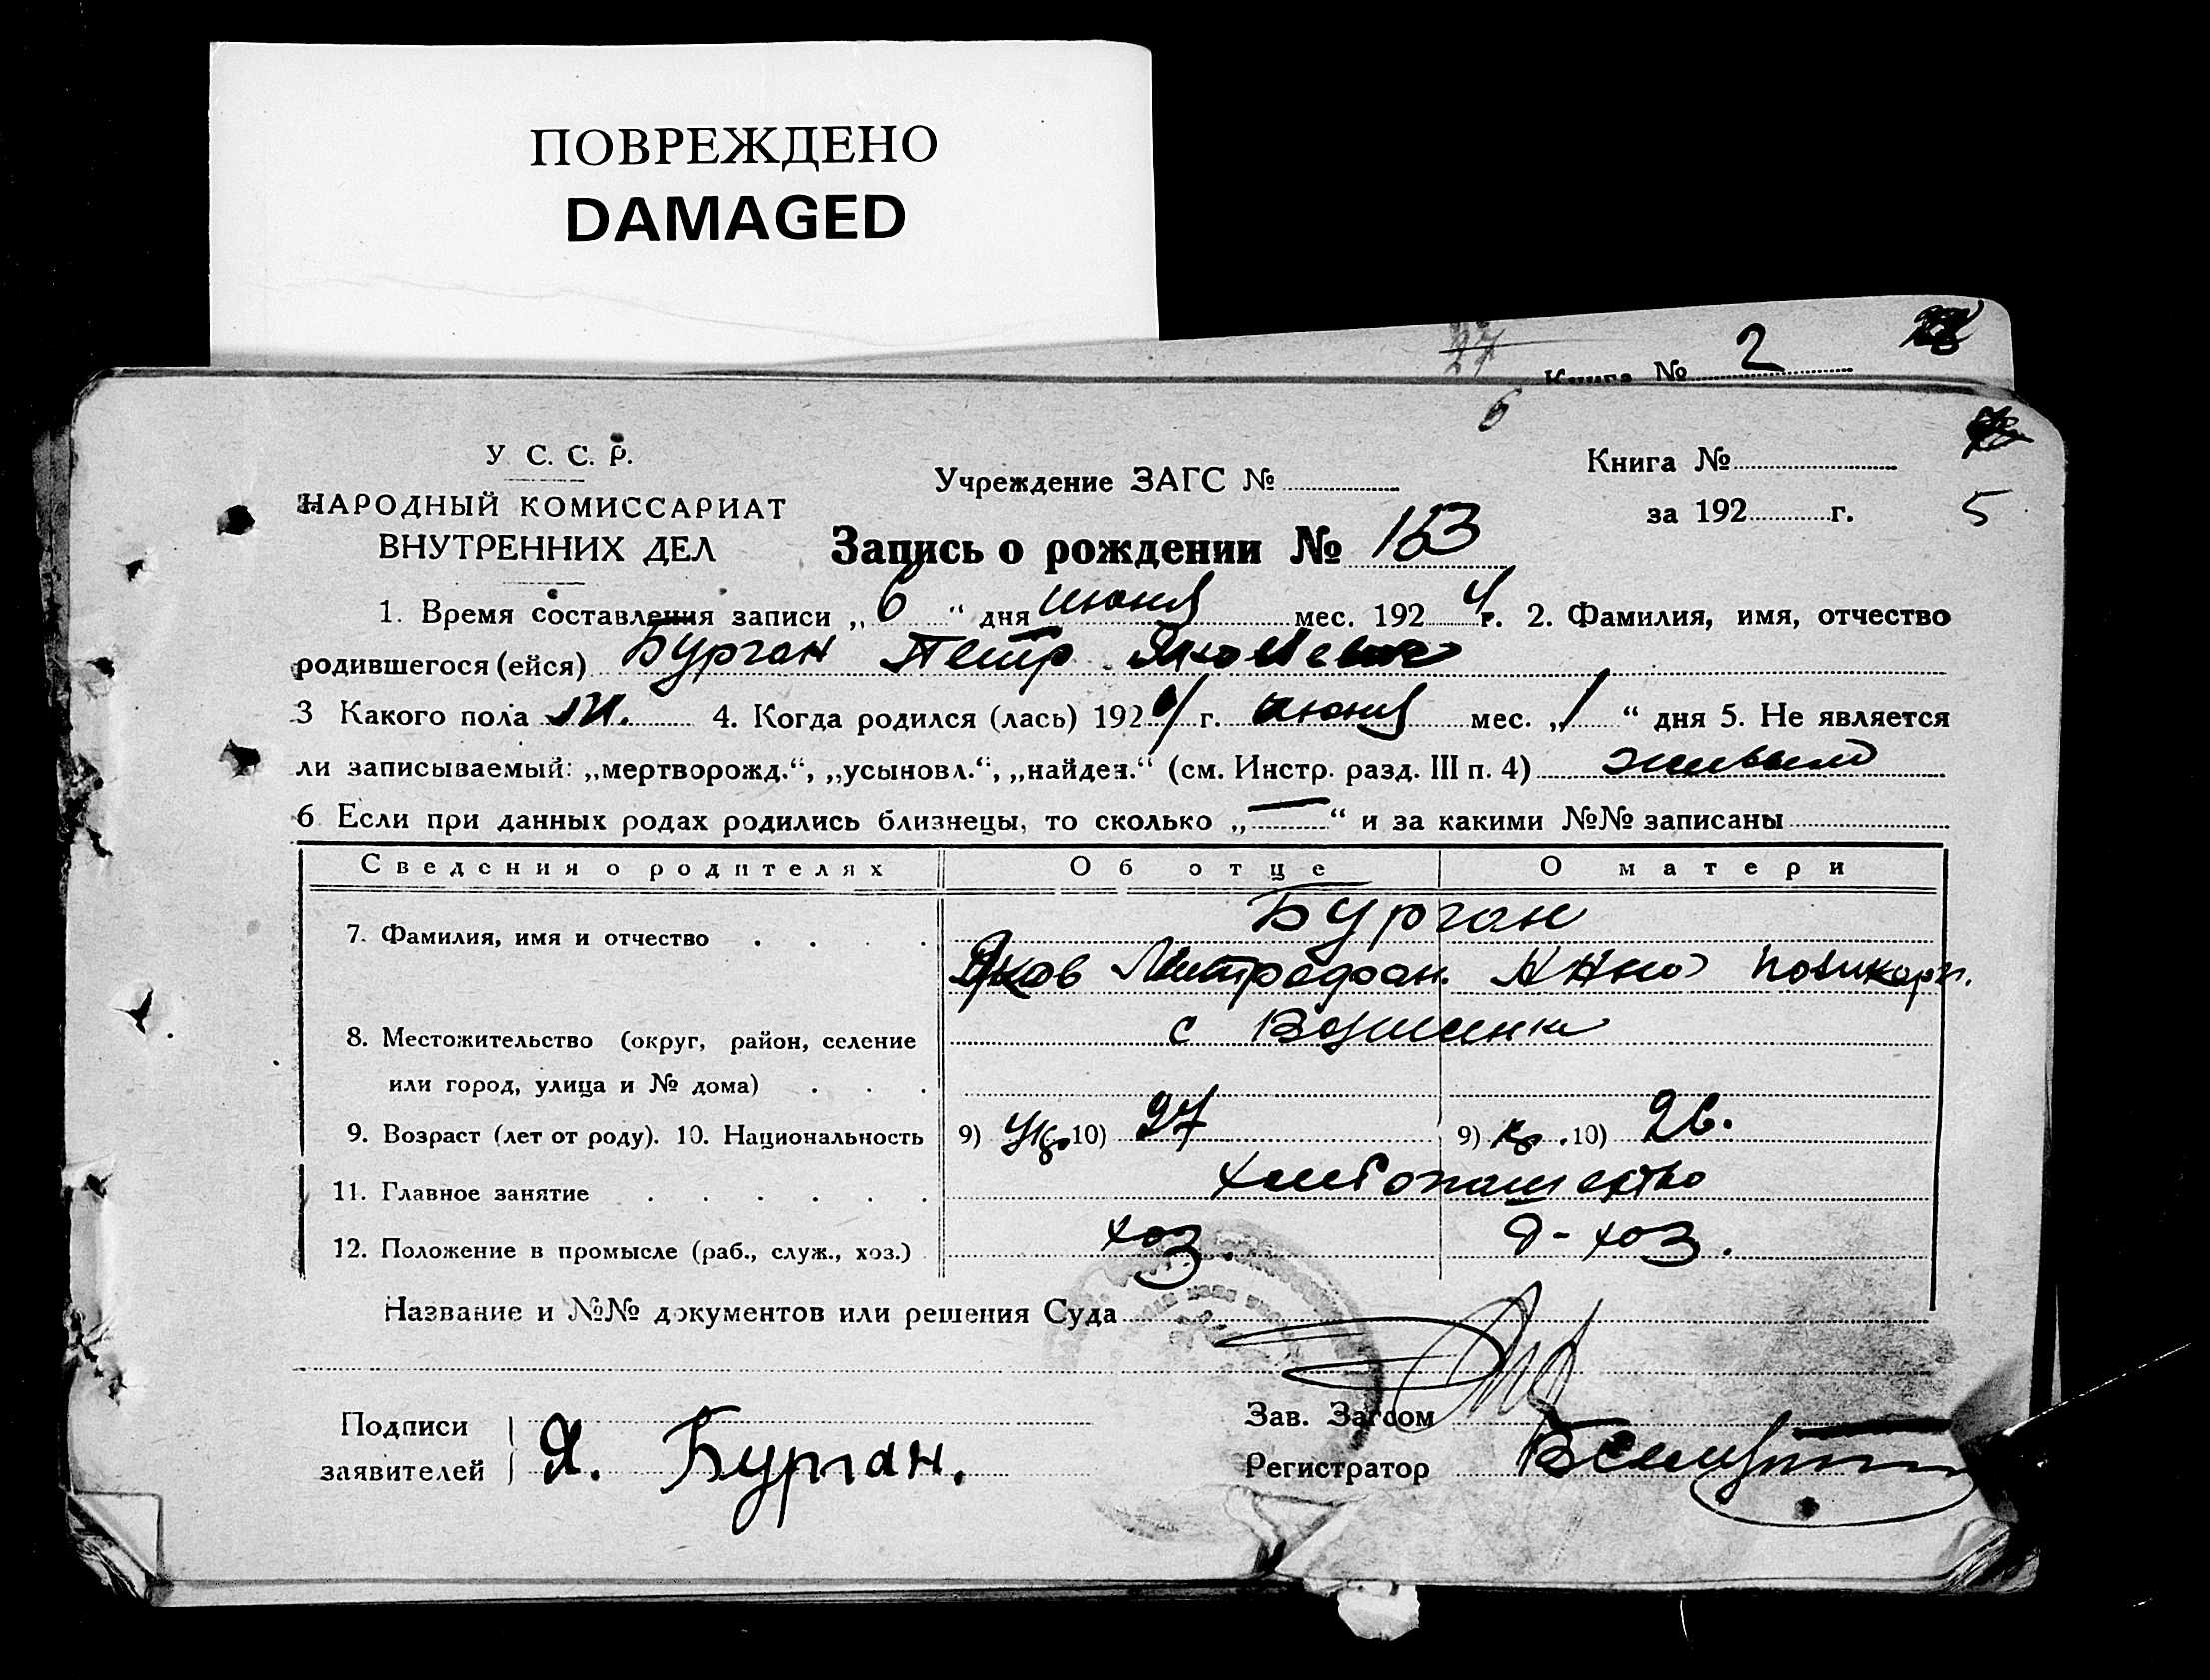 ПОВРЕЖДЕНО
DAMAGED
27
Книга № 2
6
У. С. С. Р.
НАРОДНЫЙ КОМИССАРИАТ
ВНУТРЕННИХ ДЕЛ
Учреждение ЗАГС №
Книга №
за 192 г.
5
Запись о рождении № 153
1. Время составления записи „ 6 “ дня июня мес. 1924 г. 2. Фамилия, имя, отчество
родившегося (ейся) Бурган Петр Яковлевич
3 Какого пола м. 4. Когда родился (лась) 1924 г. июня мес. „ 1 “ дня 5. Не является
ли записываемый: „мертворожд.“, „усыновл.“, „найден.“ (см. Инстр. разд. III п. 4) живым
6. Если при данных родах родились близнецы, то сколько „ — “ и за какими №№ записаны
Сведения о родителях Об отце О матери
7. Фамилия, имя и отчество Бурган
Яков Митрофан. Анна Поликарп.
8. Местожительство (округ, район, селение с
или город, улица и № дома)
9. Возраст (лет от роду). 10. Национальность 9) Укр. 10) 27 9) Укр. 10) 26.
11. Главное занятие хлебопашество
12. Положение в промысле (раб., служ., хоз.) хоз. д-хоз.
Название и №№ документов или решения Суда
Зав. Загсом
Подписи заявителей Я. Бурган.
Регистратор